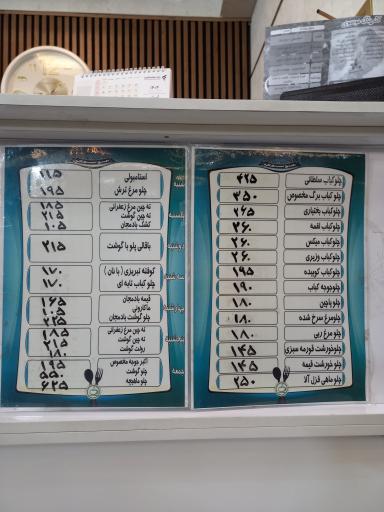 چلوکباب سلطانی ۴۲۵
چلوکباب برگ مخصوص ۳۵۰
چلوکباب بختیاری ۲۶۵
چلوکباب لقمه ۲۶۰
چلوکباب میکس ۲۶۰
چلوکباب وزیری ۲۶۰
چلوکباب کوبیده ۱۹۵
چلوجوجه کباب ۱۹۰
چلو پاچین ۱۸۰
چلومرغ سرخ شده ۱۸۰
چلو مرغ ربی ۱۸۰
چلوخورشت قورمه سبزی ۱۴۵
چلو خورشت قیمه ۱۴۵
چلو ماهی قزل آلا ۲۵۰
شنبه
استامبولی ۱۱۵
چلو مرغ ترش ۱۹۵
یکشنبه
ته چین مرغ زعفرانی ۱۸۵
ته چین گوشت ۲۱۵
کشک بادمجان ۱۰۵
دوشنبه
باقالی پلو با گوشت ۲۱۵
سه شنبه
کوفته تبریزی ( با نان ) ۱۷۰
چلو کباب تابه ای ۱۷۰
چهارشنبه
قیمه بادمجان ۱۶۵
ماکارونی ۱۰۵
چلو گوشت بادمجان ۲۳۵
پنجشنبه
ته چین مرغ زعفرانی ۱۸۵
ته چین گوشت ۲۱۵
رولت گوشت ۱۸۰
جمعه
اکبر جوجه مخصوص ۱۹۵
چلو گوشت ۵۵۰
چلو ماهیچه ۶۲۵